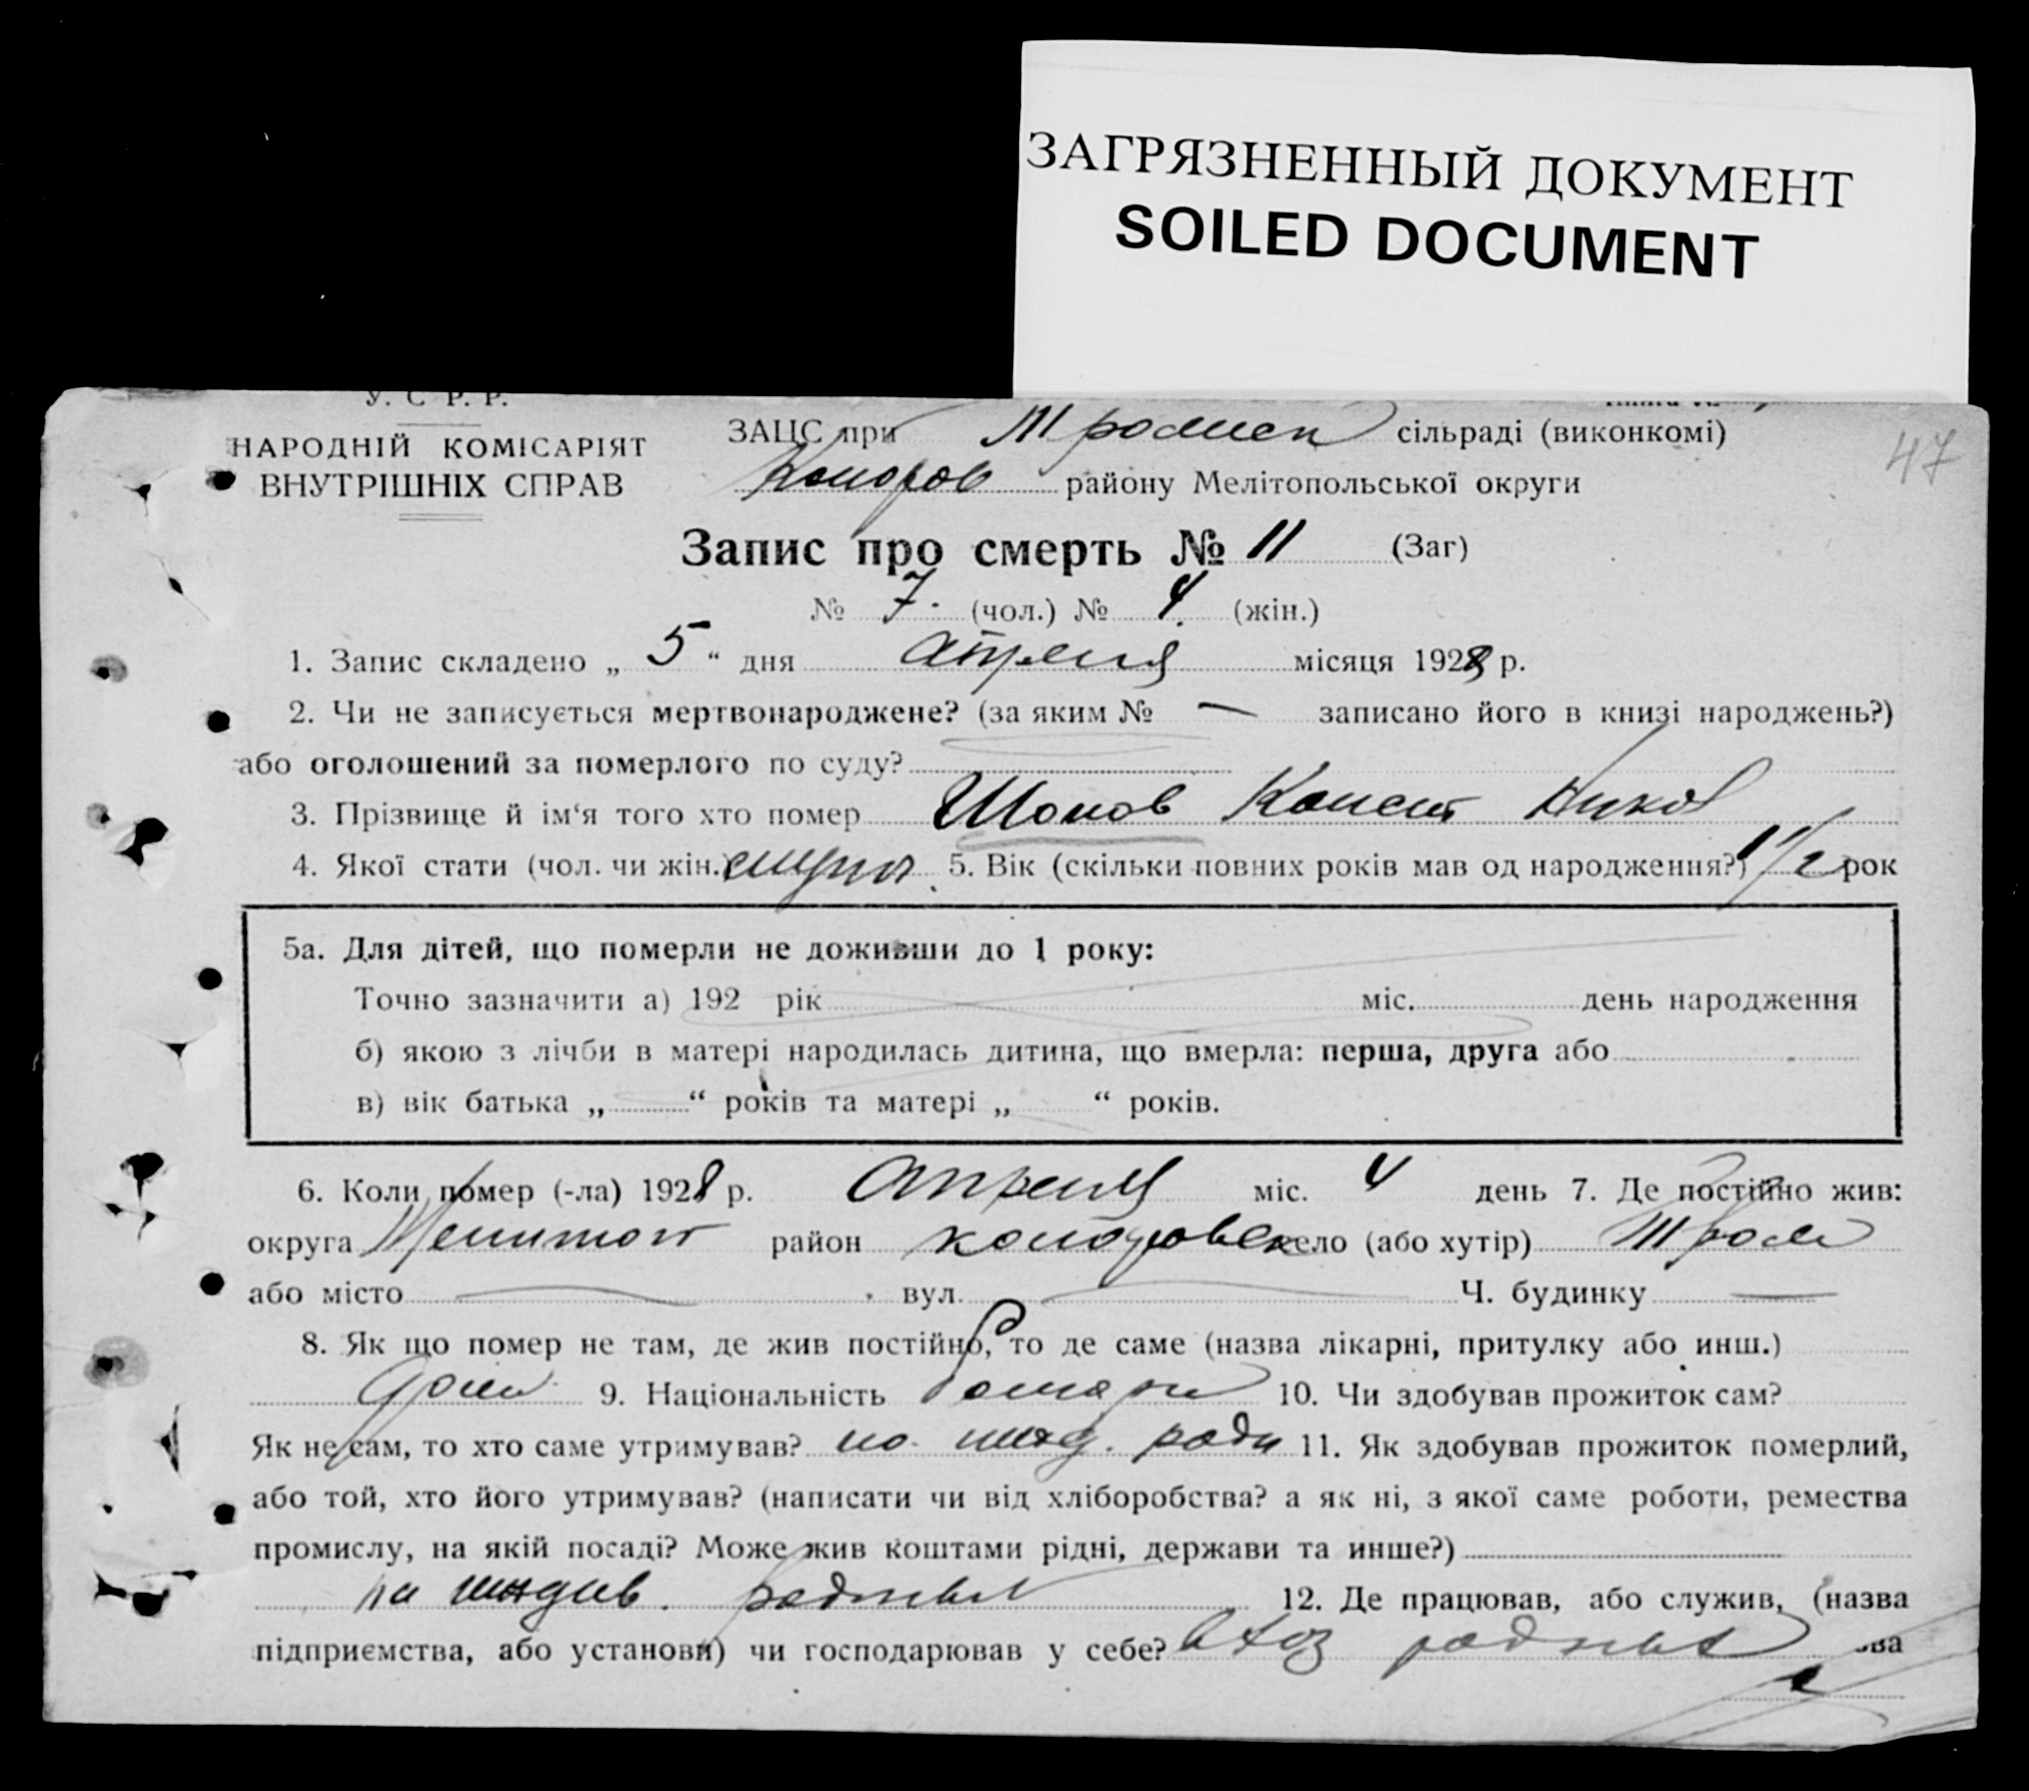 ЗАГРЯЗНЕННЫЙ ДОКУМЕНТ
SOILED DOCUMENT
У. С. Р. Р.
НАРОДНІЙ КОМІСАРІЯТ
ВНУТРІШНІХ СПРАВ
47
ЗАЦС при сільраді (виконкомі)
району Мелітопольської округи
Запис про смерть № 11 (Заг)
№ 7. (чол.) № 4. (жін.)
1. Запис складено „ 5 “ дня апреля місяця 1928 р.
2. Чи не записується мертвонароджене? (за яким № — записано його в книзі народжень?)
або оголошений за померлого по суду?
3. Прізвище й ім‘я того хто помер Шопов Конст Никол
4. Якої стати (чол. чи жін.) 5. Вік (скільки повних років мав од народження?) 1 1/2 рок
5а. Для дітей, що померли не доживши до 1 року:
Точно зазначити а) 192 рік міс. день народження
б) якою з лічби в матері народилась дитина, що вмерла: перша, друга або
в) вік батька „ “ років та матері „ “ років.
6. Коли помер (-ла) 1928 р. Апреля міс. 4 день 7. Де постійно жив:
округа Мелитоп район село (або хутір)
або місто — вул. — Ч. будинку —
8. Як що помер не там, де жив постійно, то де саме (назва лікарні, притулку або инш.)
9. Національність болгари 10. Чи здобував прожиток сам?
Як не сам, то хто саме утримував? на ижд. роди 11. Як здобував прожиток померлий,
або той, хто його утримував? (написати чи від хліборобства? а як ні, з якої саме роботи, ремества
промислу, на якій посаді? Може жив коштами рідні, держави та инше?)
на иждив. родных 12. Де працював, або служив, (назва
підприємства, або установи) чи господарював у себе? в хоз родных